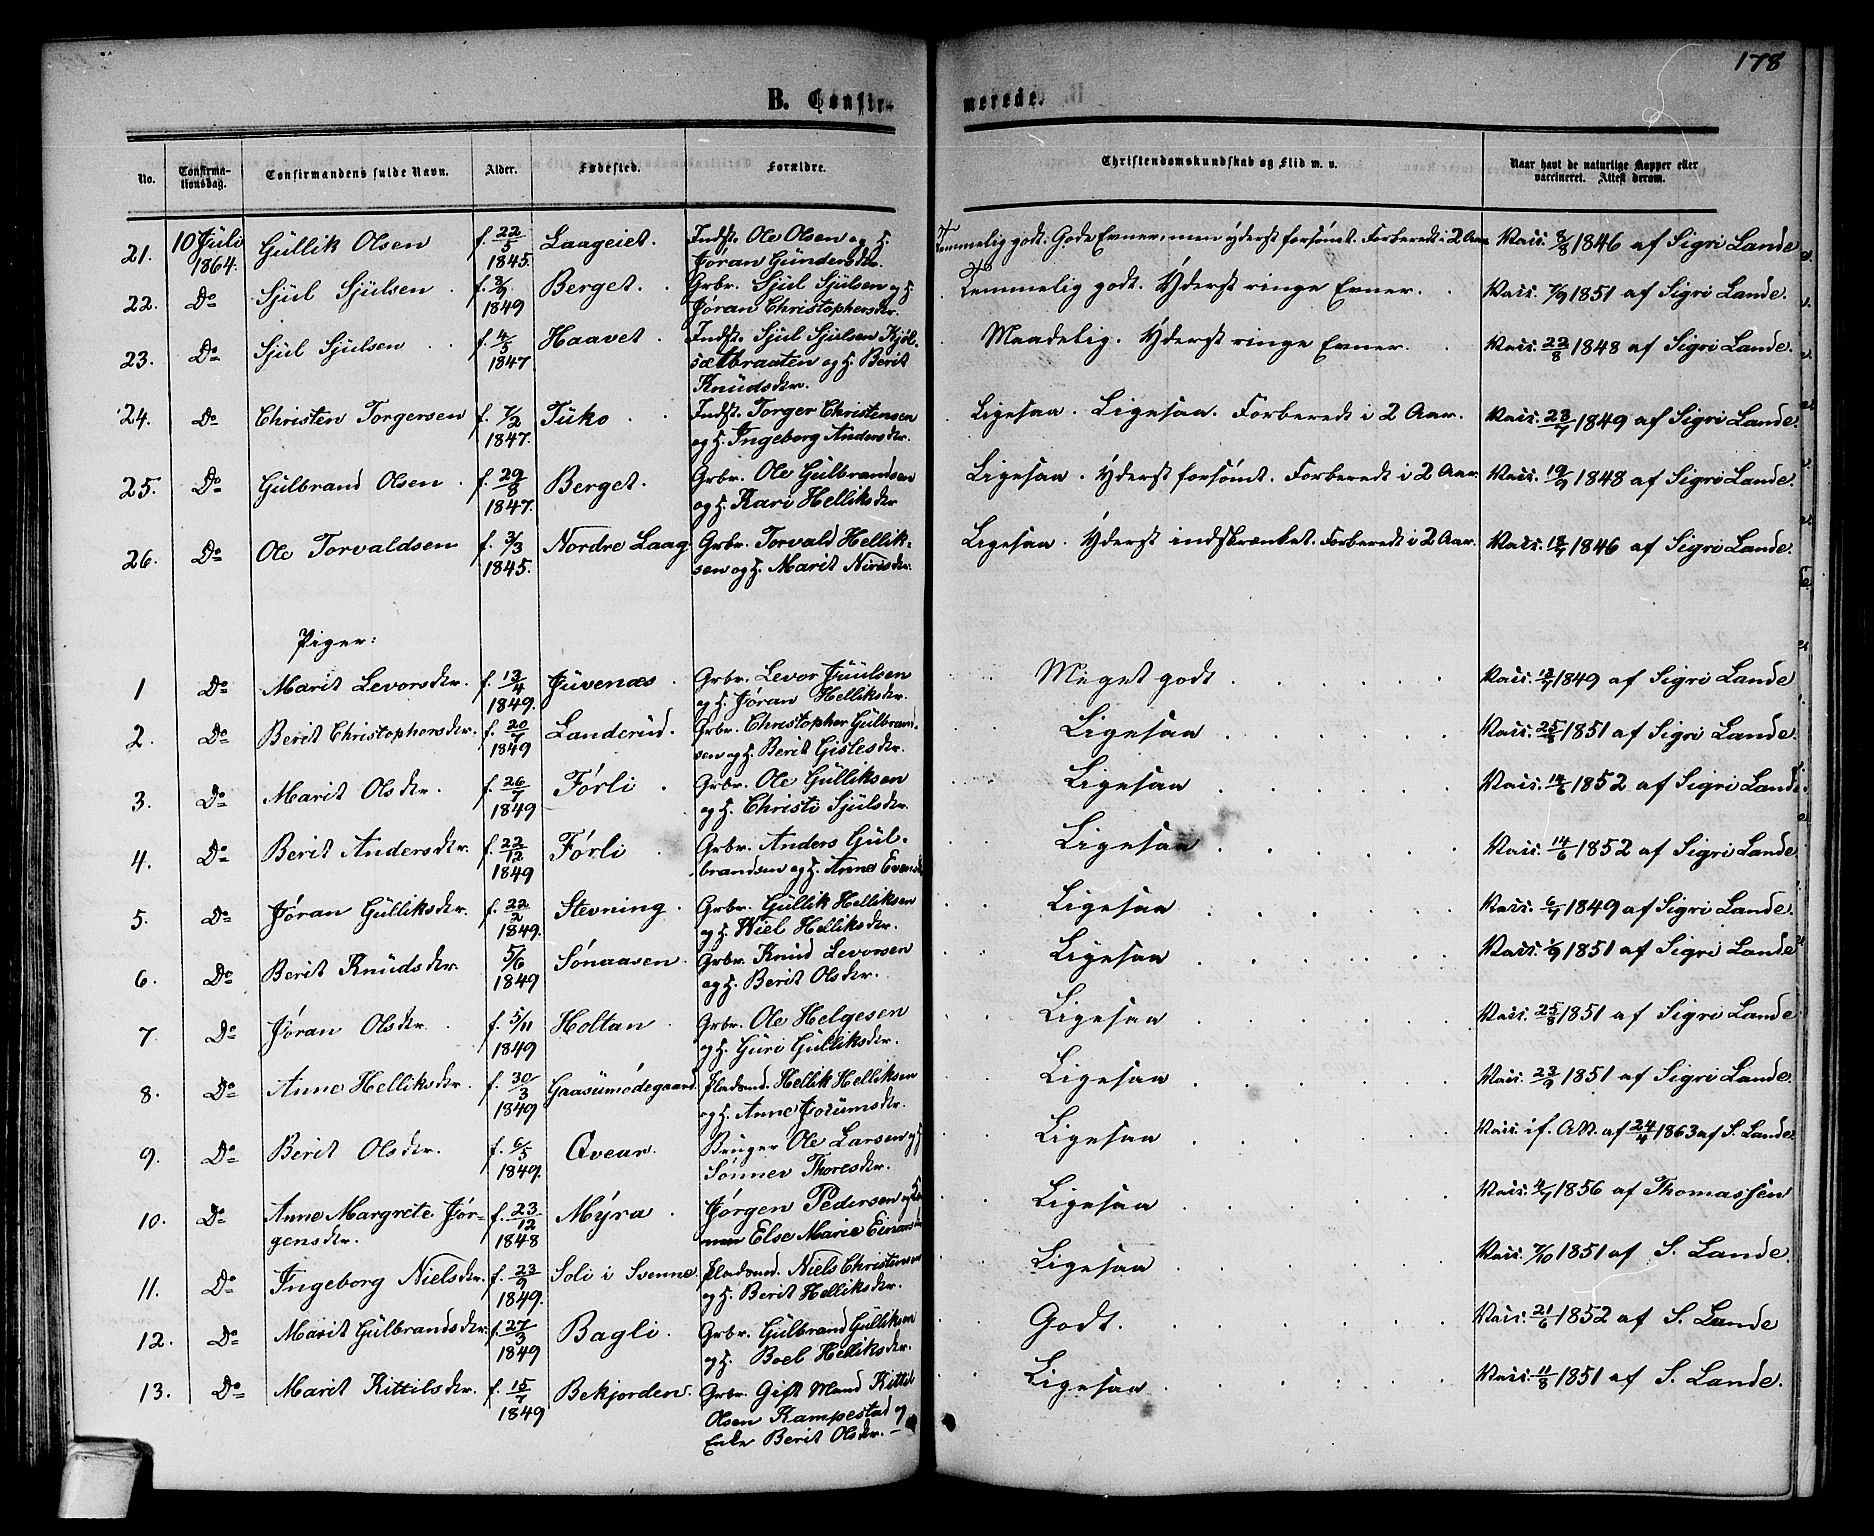 178
B. Confir-
merede.
No.
Confirma-
tionsdag.
Confirmandens fulde Navn.
Alder.
Fødested.
Forældre.
Christendomskundskab og Flid m. v.
Naar havt de naturlige Kopper eller
vaccineret. Attest derom.
21. 10 Juli 1864. Gullik Olsen f. 22/5 1845. Laageiet. Indst. Ole Olsen og H. Jøran Gundersdtr. Temmelig godt. Gode Evner, men yderst forsømt. Forberedt i 2 Aar Vacc. 8/8 1846 af Sigri Lande
22. Do Sjul Sjulsen f. 3/9 1849 Berget. Grbr. Sjul Sjulsen og H. Jøran Christophersdtr. Temmelig godt. Yderst ringe Evner. Vacc. 7/9 1851 af Sigri Lande.
23. Do Sjul Sjulsen f. 4/5 1847 Haavet. Indst. Sjul Sjulsen Kjøl-
sætbraaten og H. Berit
Knudsdtr. Maadelig. Yderst ringe Evner. Vacc. 22/8 1848 af Sigri Lande.
24. Do Christen Torgersen f. 7/2 1847. Tuko Indst. Torger Christensen
og H. Ingeborg Andersdtr. Ligesaa. Ligesaa. Forberedt i 2 Aar. Vacc. 23/7 1849 af Sigri Lande.
25. Do Gulbrand Olsen f. 29/8 1847. Berget. Grbr. Ole Gulbrandsen
og H. Kari Helliksdtr Ligesaa. Yderst forsømt. Forberedt i 2 Aar. Vacc. 19/9 1848 af Sigri Lande.
26. Do Ole Torvaldsen f. 3/3 1845. Nordre Laag Grbr. Torvald Hellik-
sen og H. Marit Nirisdtr. Ligesaa. Yderst indskrænket. Forberedt i 2 Aar. Vacc. 18/7 1846 af Sigri Lande.
Piger:
1 Do Marit Levorsdtr. f. 13/4 1849. Juvenæs. Grbr. Levor Juulsen
og H. Jøran Helliksdtr. Meget godt Vacc. 13/7 1849 af Sigri Lande
2. Do Berit Christophersdtr. f. 20/7 1849 Landerud. Grbr. Christopher Gulbrand-
sen og H. Berit Gislesdtr. Ligesaa Vacc. 25/8 1851 af Sigri Lande.
3. Do Marit Olsdtr. f. 26/7 1849 Førli Grbr. Ole Gulliksen
og H. Christi Sjulsdtr. Ligesaa Vacc. 14/6 1852 af Sigri Lande
4. Do Berit Andersdtr. f. 22/12 1849 Førli Grbr. Anders Gul-
brandsen og H. Anne Evensd Ligesaa Vacc. 14/6 1852 af Sigri Lande.
5. Do Jøran Gulliksdtr. f. 22/2 1849. Stevning. Grbr. Gullik Helliksen
og H. Wiel Helliksdtr. Ligesaa Vacc. 6/7 1849 af Sigri Lande.
6. Do Berit Knudsdtr. 5/6 1849 Sønaasen Grbr. Knud Levorsen
og H. Berit Olsdtr. Ligesaa Vacc. 1/9 1851 af Sigri Lande
7. Do Jøran Olsdtr. f. 5/11 1849 Holtan. Grbr. Ole Helgesen
og H. Guri Gulliksdtr. Ligesaa Vacc. 25/8 1851 af Sigri Lande
8. Do Anne Helliksdtr. f. 30/3 1849 Gaasumødegaard. Pladsmd. Hellik Helliksen
og H. Anne Jorumsdtr. Ligesaa Vacc. 23/9 1851 af Sigri Lande.
9. Do Berit Olsdtr. f. 6/5 1849. Qvear. Bruger Ole Larsen og H
Sønnev Thoresdtr. Ligesaa Vacc. if. Att. af 24/4 1863 af S. Lande.
10. Do Anne Margrete Jør-
gensdtr. f. 23/12 1848 Myra. Jørgen Pedersen og
Else Marie Einarsd Ligesaa Vacc. 4/7 1856 af Thomassen
11. Do Ingeborg Nielsdtr. f. 23/9 1849. Soli i Svenne. Pladsmd. Niels Christensen
og H. Berit Helliksdtr. Ligesaa Vacc. 7/10 1851 af S. Lande.
12. Do Marit Gulbrandsdtr. f. 27/3 1849 Bagli. Grbr. Gulbrand Gulliksen
og H. Boel Helliksdtr. Godt. Vacc. 21/6 1852 af S. Lande
13. Do Marit Kittilsdtr. f. 15/7 1849 Bekjorden. Grbr. Gift Mand Kittil
Olsen Kampestad og
Enke Berit Olsdtr. — Ligesaa Vacc. 11/8 1851 af S. Lande.